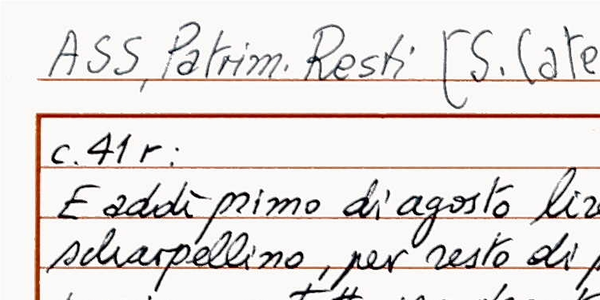 ASS, Patrim. Resti [S. Cate
c. 41 r:
E addì primo di agosto lir
scharpellino, per resto di p